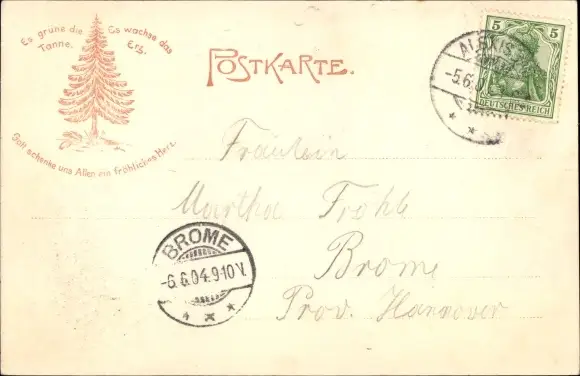 Es grüne die Tanne.
Es wachse das Erz.
Gott schenke uns Allen ein fröhliches Herz.
POSTKARTE.
5 5
DEUTSCHES REICH
ALEXIS
-5.6.0
Fräulein
Martha Frohb
Brome
Prov. Hannover
BROME
-6.6.04.9-10V.